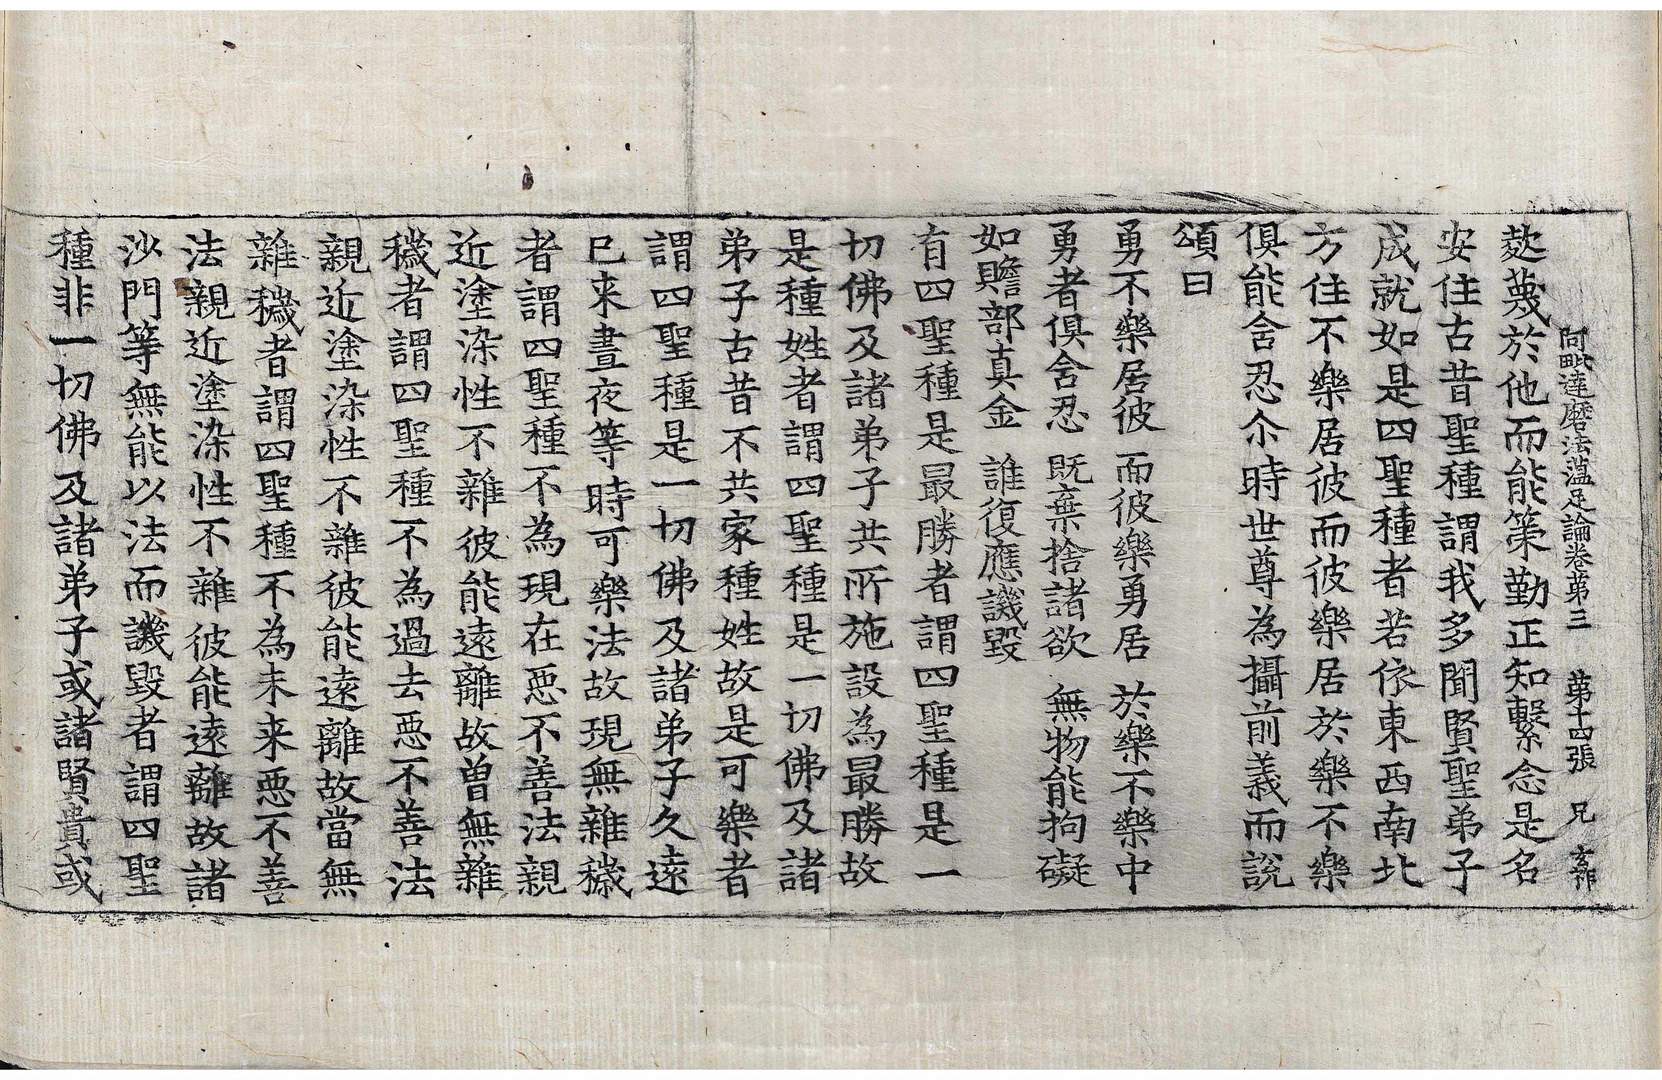 阿毗達磨法蕴足論卷第三　第十四張　兄　玄祚
欻蔑於他而能策勤正知繫念是名
安住古昔聖種謂我多聞賢聖弟子
成就如是四聖種者若依東西南北
方住不樂居彼而彼樂居於樂不樂
俱能含忍尒時世尊為攝前義而說
頌曰
勇不樂居彼　而彼樂勇居　於樂不樂中
勇者俱含忍　既棄捨諸欲　無物能拘礙
如贍部真金　誰復應譏毀
有四聖種是最勝者謂四聖種是一
切佛及諸弟子共所施設為最勝故
是種姓者謂四聖種是一切佛及諸
弟子古昔不共家種姓故是可樂者
謂四聖種是一切佛及諸弟子久遠
已來晝夜等時可樂法故現無雜穢
者謂四聖種不為現在惡不善法親
近塗染性不雜彼能遠離故曾無雜
穢者謂四聖種不為過去惡不善法
親近塗染性不雜彼能遠離故當無
雜穢者謂四聖種不為未来惡不善
法親近塗染性不雜彼能遠離故諸
沙門等無能以法而譏毀者謂四聖
種非一切佛及諸弟子或諸賢貴或